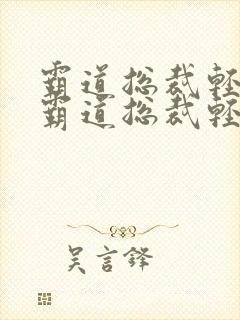 霸道总裁轻
霸道总裁轻
吴言铎